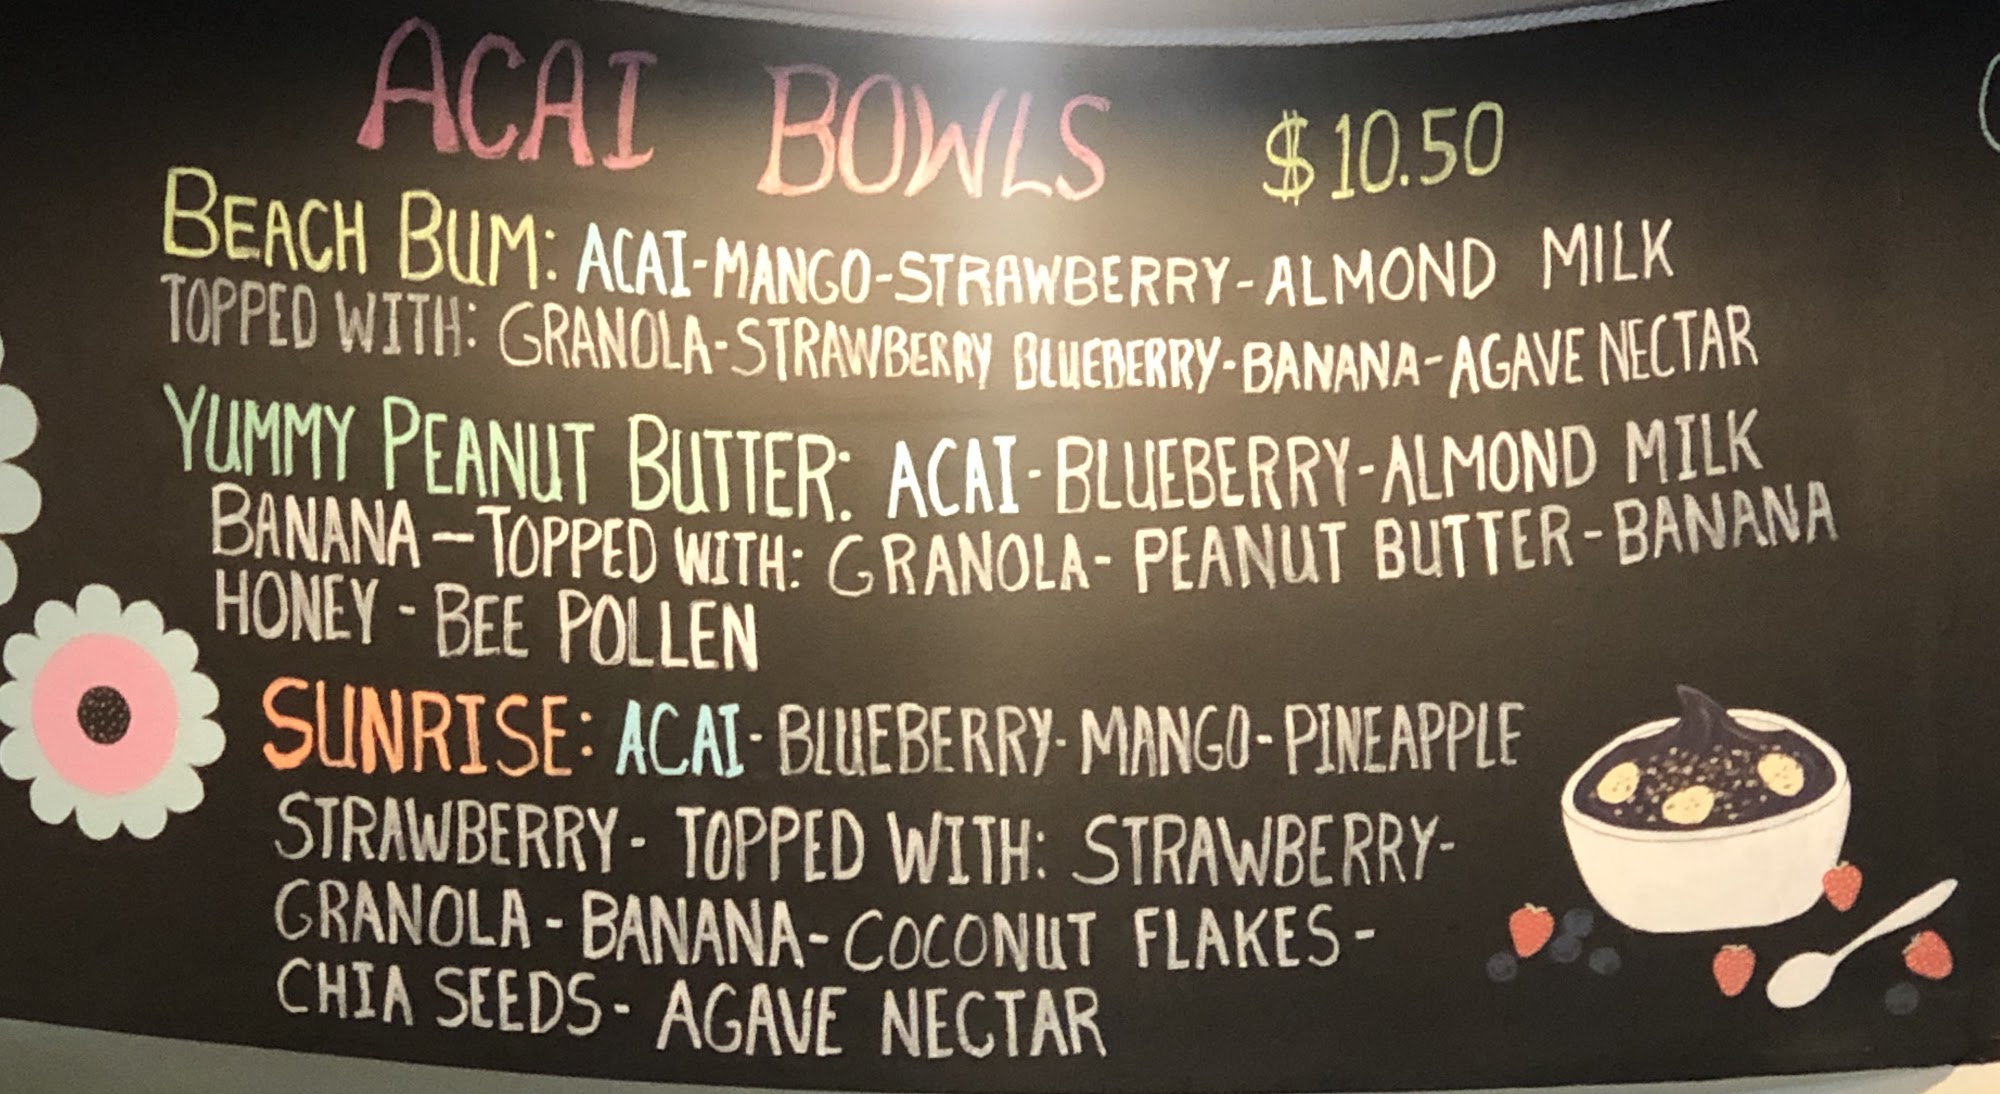 ACAI BOWLS $10.50
BEACH BUM: ACAI-MANGO-STRAWBERRY-ALMOND MILK
TOPPED WITH: GRANOLA-STRAWBERRY BLUEBERRY-BANANA-AGAVE NECTAR
YUMMY PEANUT BUTTER: ACAI-BLUEBERRY-ALMOND MILK
BANANA-TOPPED WITH: GRANOLA-PEANUT BUTTER-BANANA
HONEY-BEE POLLEN
SUNRISE: ACAI-BLUEBERRY-MANGO-PINEAPPLE
STRAWBERRY-TOPPED WITH: STRAWBERRY-
GRANOLA-BANANA-COCONUT FLAKES-
CHIA SEEDS-AGAVE NECTAR